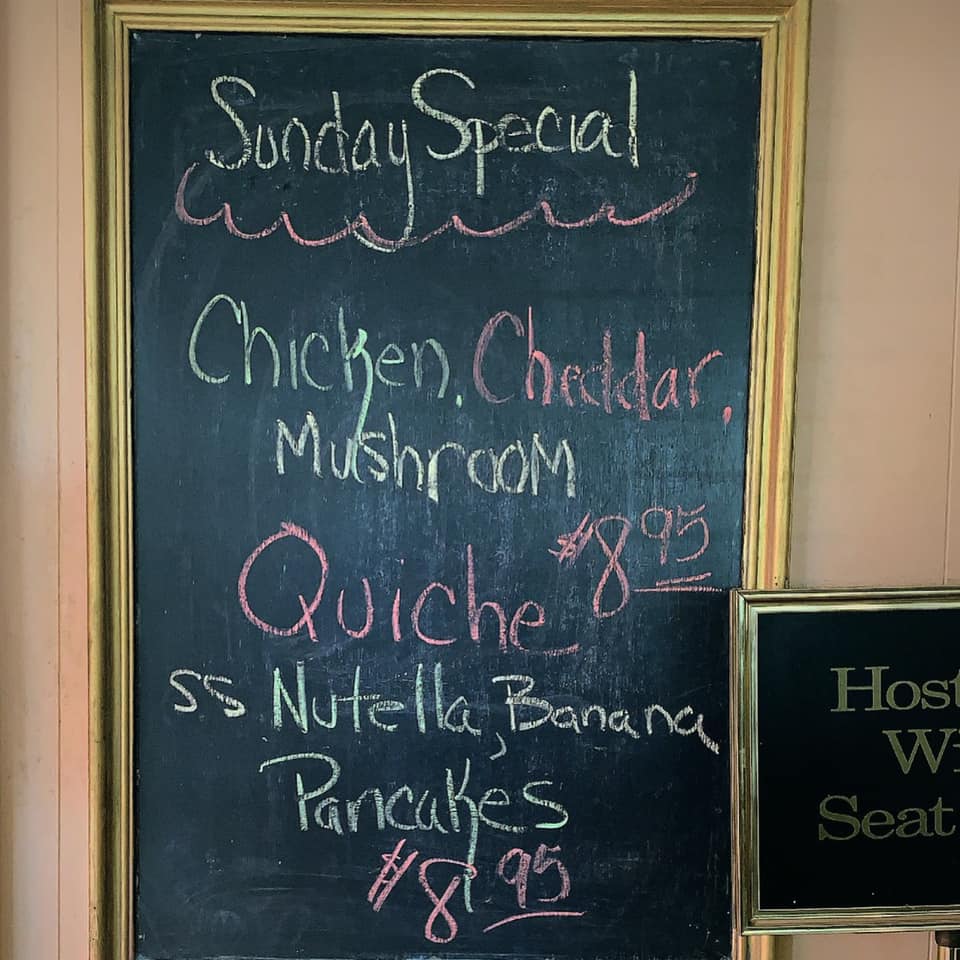 Sunday Special
Chicken, Cheddar,
Mushroom
$8.95
Quiche
SS Nutella, Banana
Pancakes
$8.95
Host
Wi
Seat